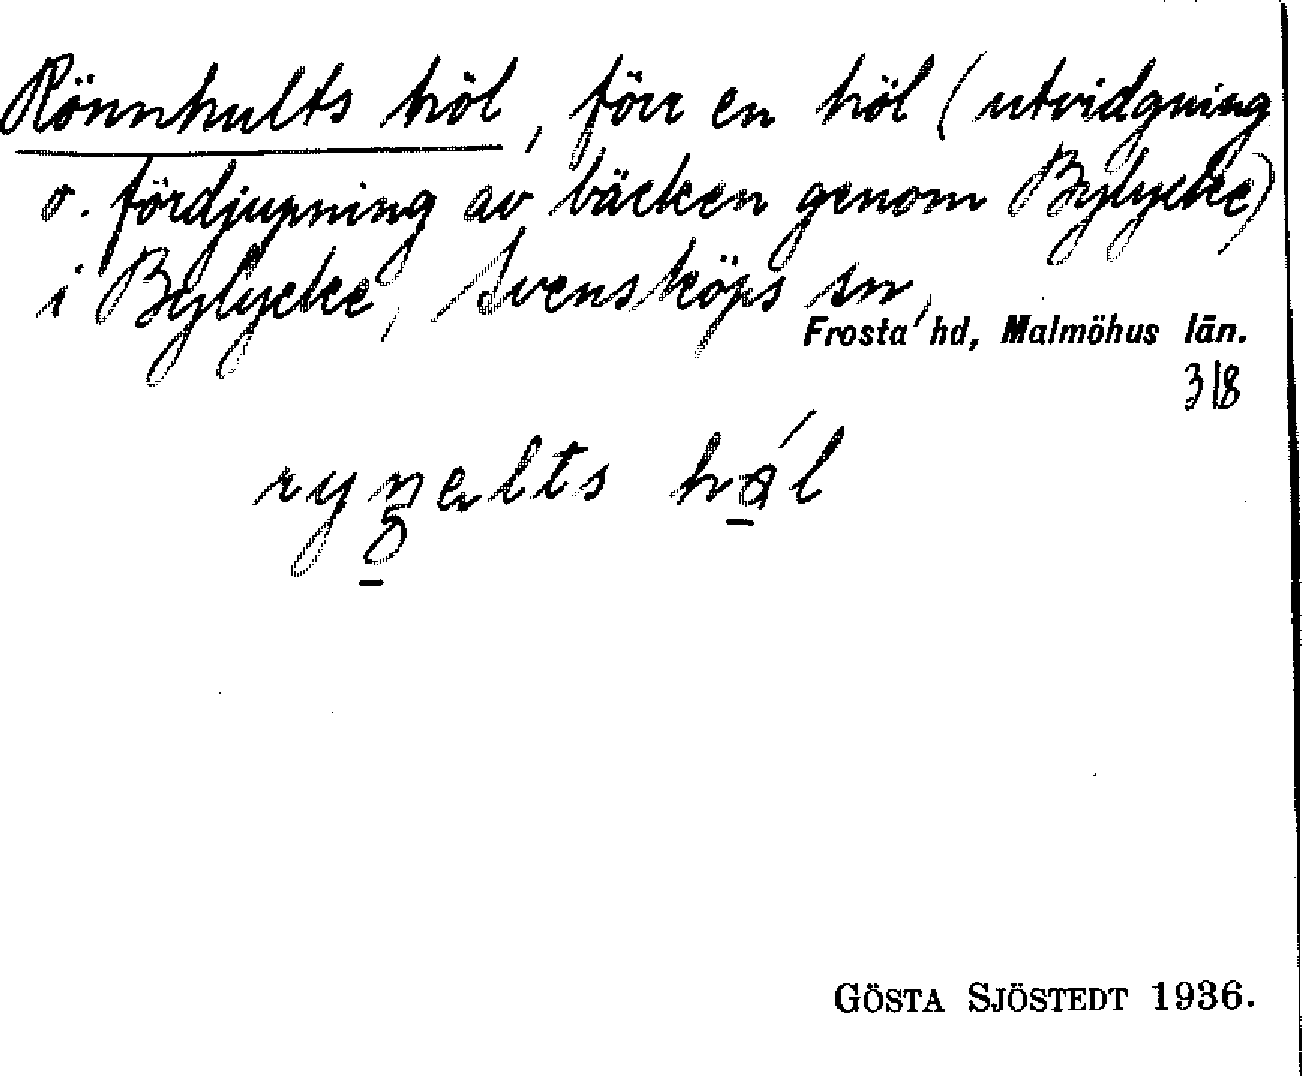 Rönnhults höl, förr en höl (utvidgning
o. fördjupning av bäcken genom Bylycke)
i Bylycke, Svensköps sn,
Frosta hd, Malmöhus län.
3/8
GÖSTA SJÖSTEDT 1936.